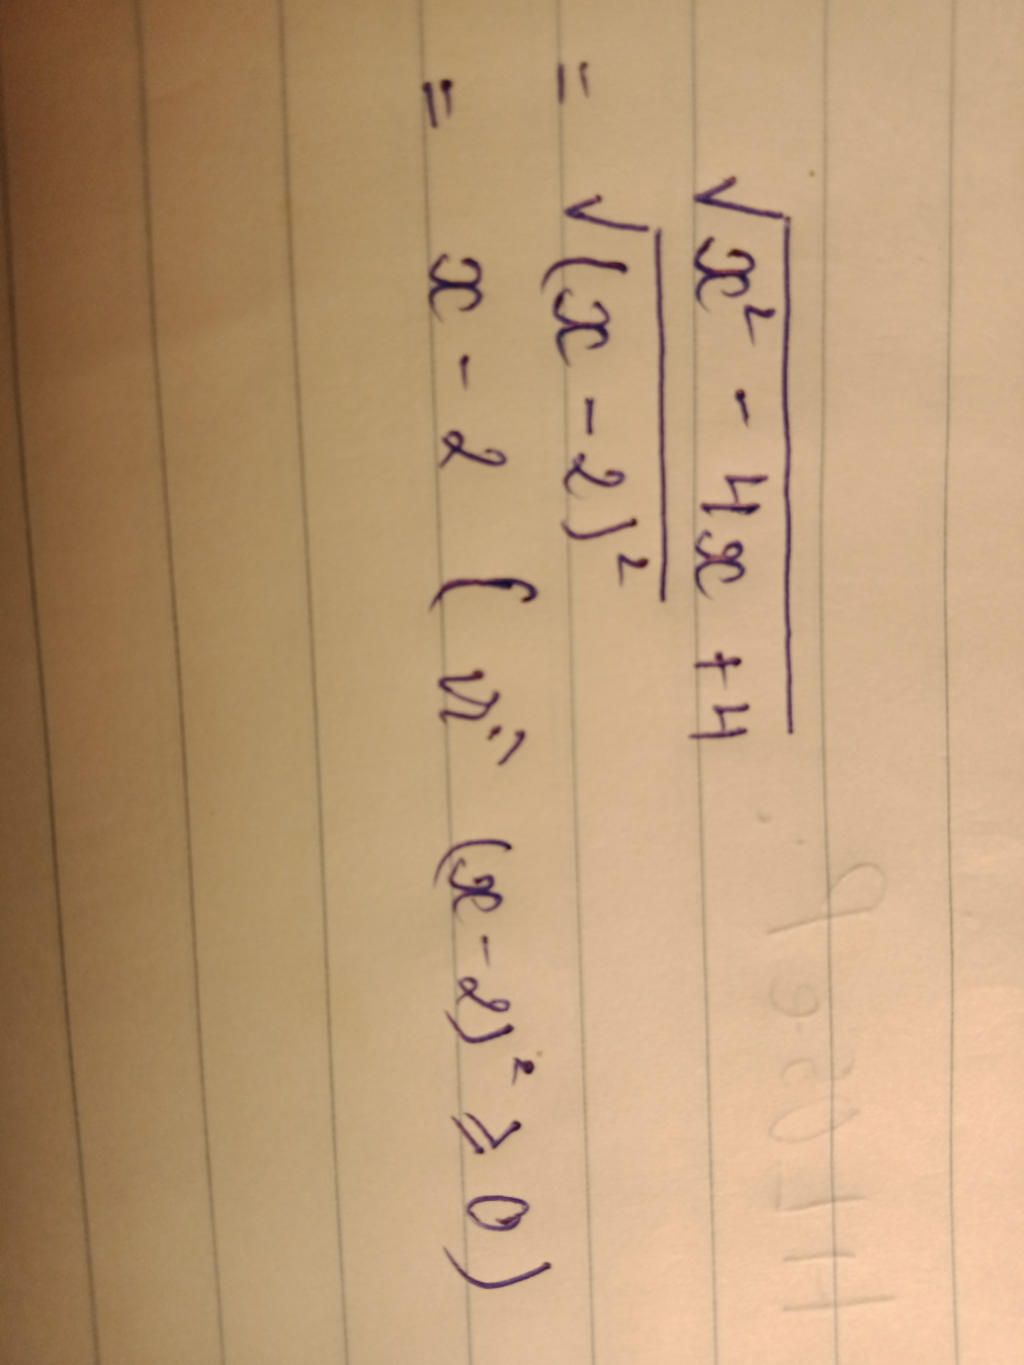 √(x² - 4x + 4)
= √((x - 2)²)
= x - 2 ( vì (x - 2)² ≥ 0 )